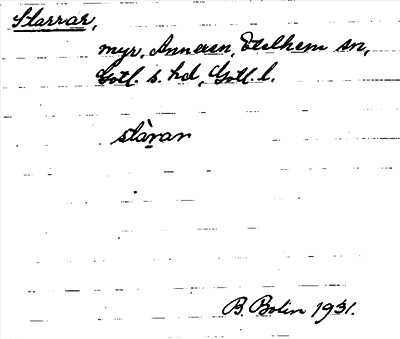 Starrar,
myr, Annexen, Etelhem sn,
Gotl. s. hd, Gotl. l.
stàran
B. Bolin 1931.